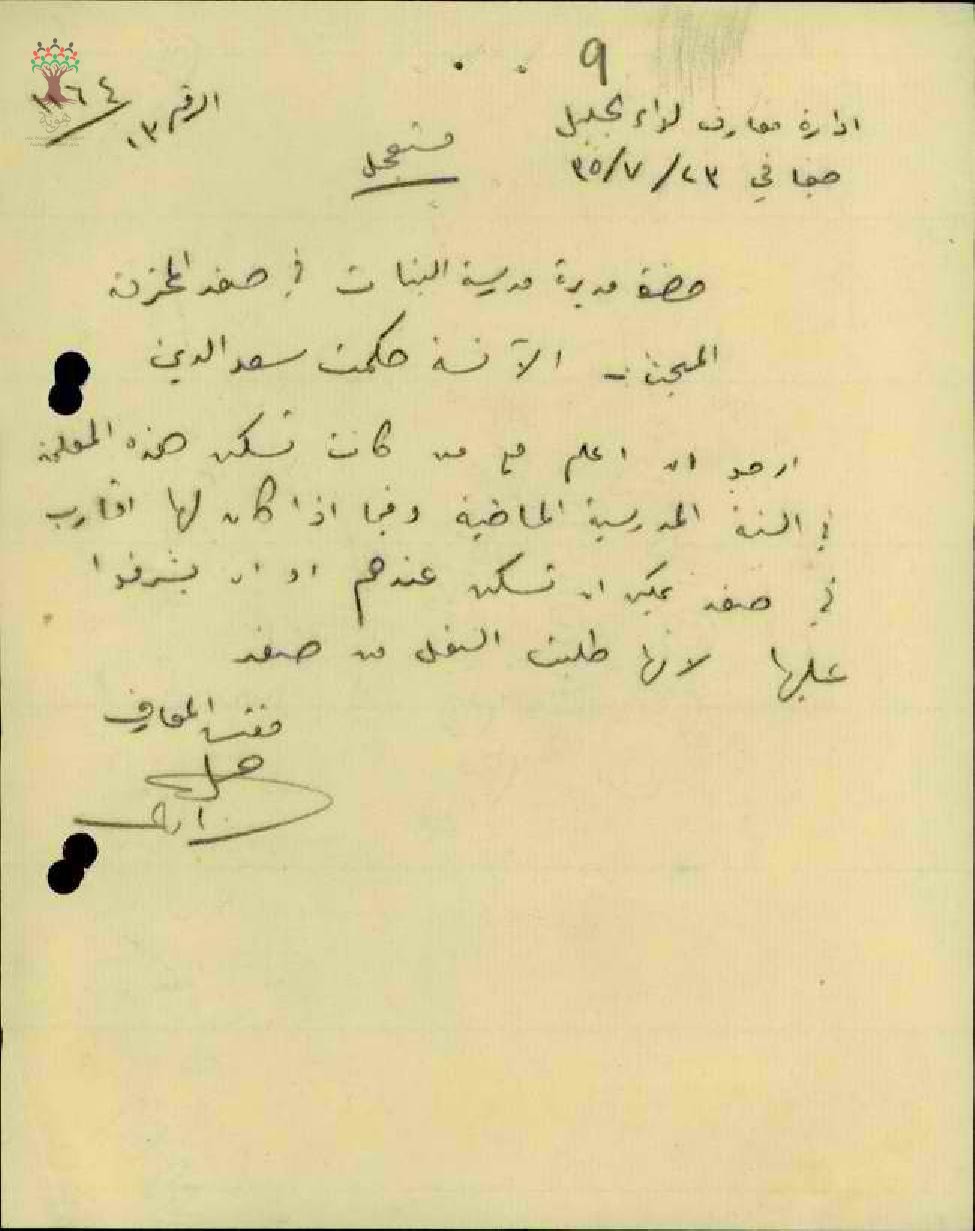 9
ادارة معارف لواء الجليل
الرقم ١٣/١١٦٤
حيفا في ٢٣/٧/٣٥
مستعجل
حضرة مديرة مدرسة البنات في صفد المحترمة
المبحث :- الآنسة حكمت سعد الدين
ارجو ان اعلم مع من كانت تسكن هذه المعلمة
في السنة المدرسية الماضية وفيما اذا كان لها اقارب
في صفد يمكن ان تسكن عندهم او ان يشرفوا
عليها لانها طلبت النقل من صفد
مفتش المعارف